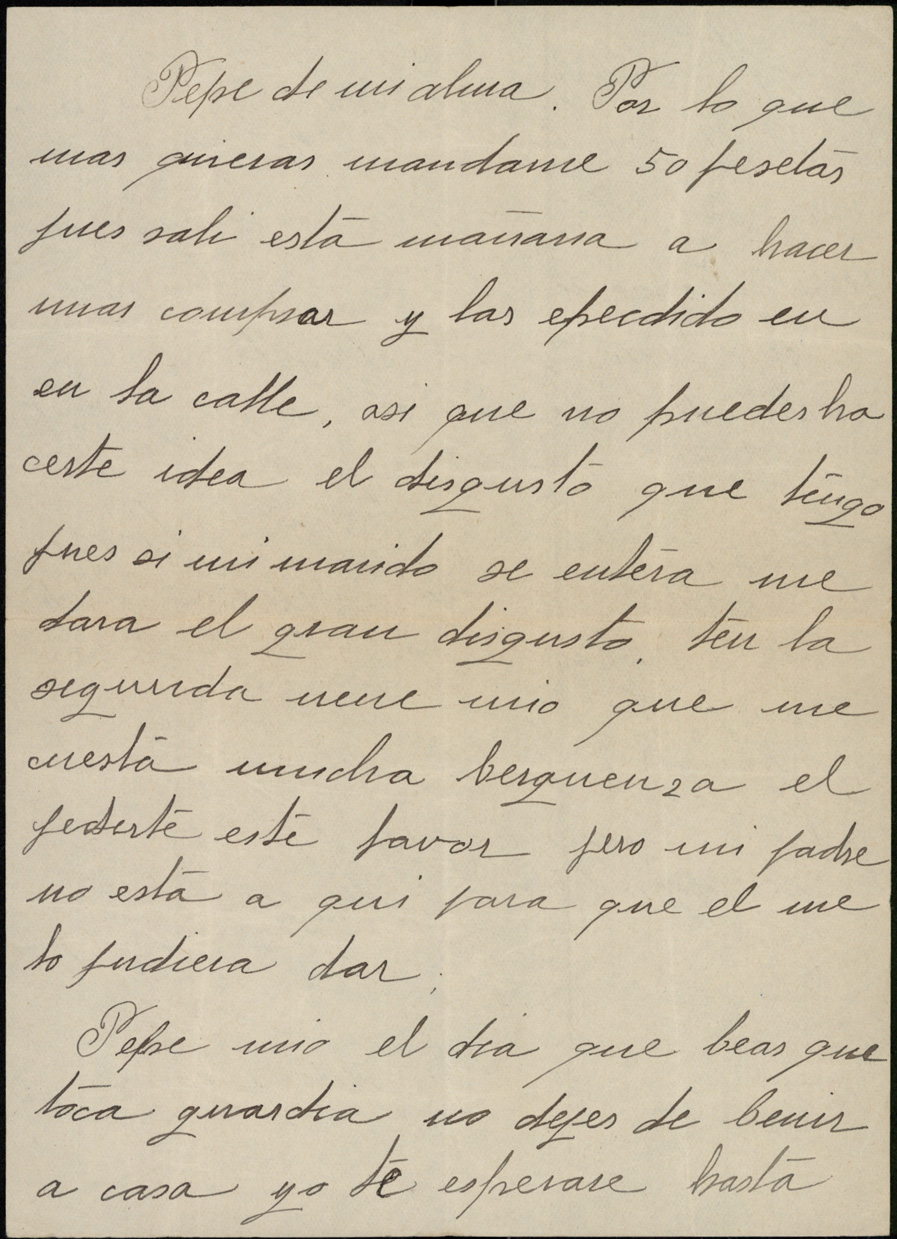 Pepe de mi alma. Por lo que
mas quieras mandame 50 pesetas
pues sali esta mañana a hacer
unas compras y las epecdido en
en la calle, asi que no puedes ha
certe idea el disgusto que tengo
pues si mi marido se entera me
dara el gran disgusto. ten la
segurida nene mio que me
cuesta mucha berguenza el
pedirte este favor pero mi padre
no esta a qui para que el me
lo pudiera dar.
Pepe mio el dia que beas que
toca guardia no dejes de benir
a casa yo te esperare hasta